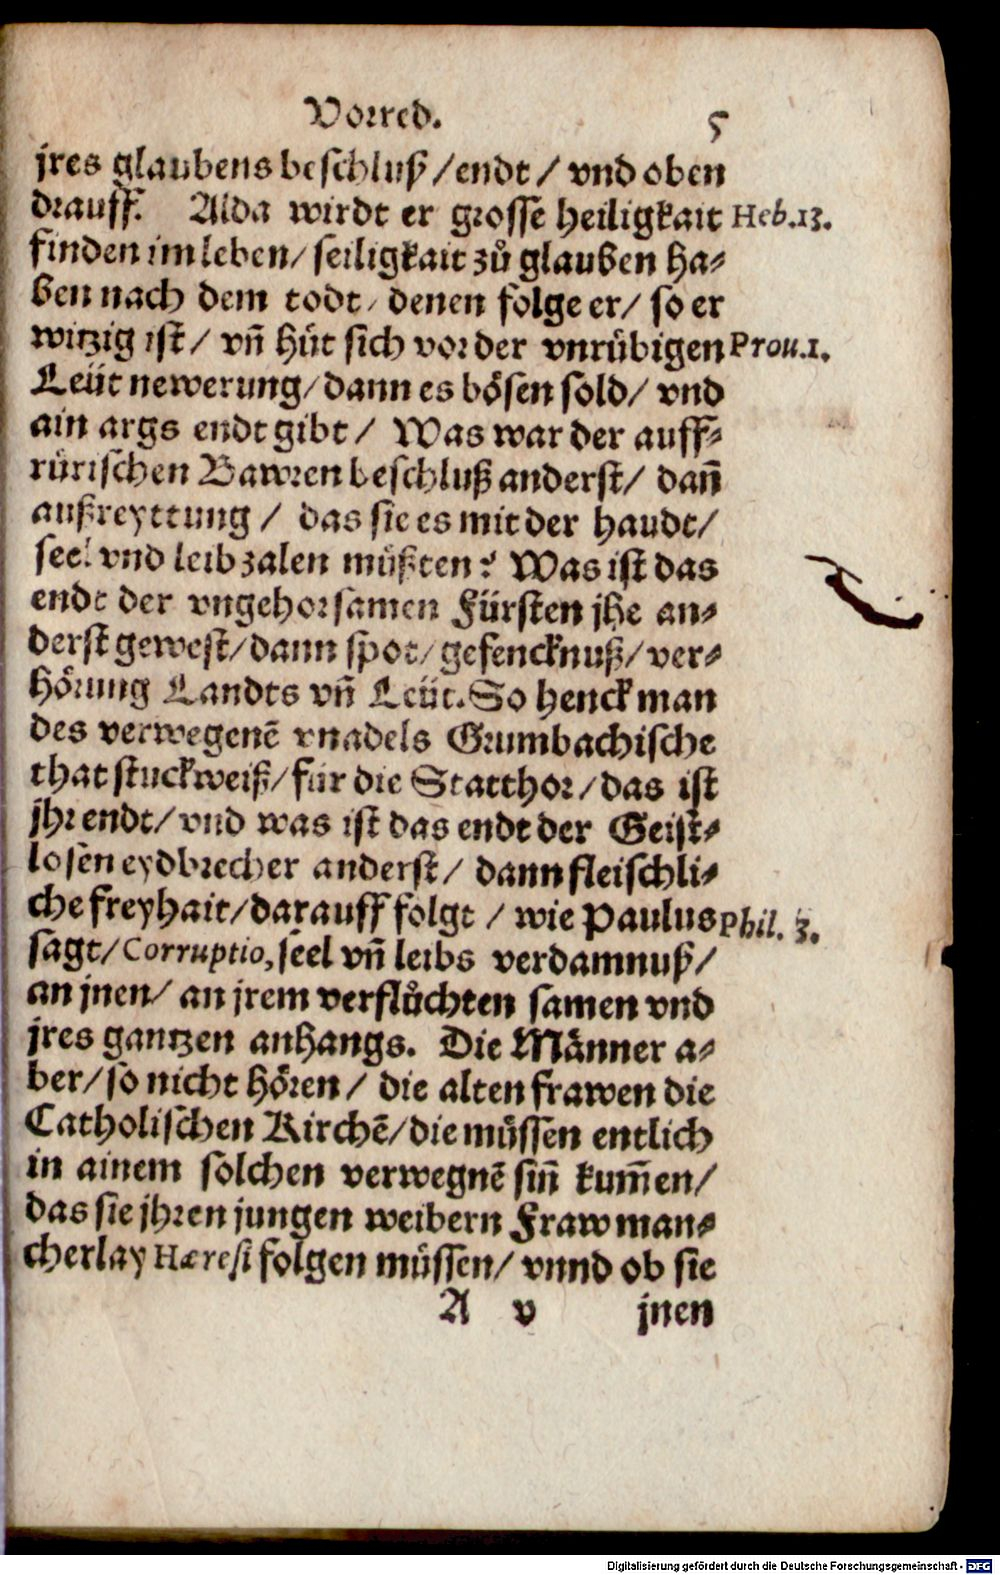 Vorred. 5
jres glaubens beschluß / endt / vnd oben
drauff. Alda wirdt er grosse heiligkait Heb.13.
finden im leben / seiligkait zů glauben ha⸗
ben nach dem todt / denen folge er / so er
witzig ist / vñ hüt sich vor der vnrübigen Prou.1.
Leüt newerung / dann es bösen sold / vnd
ain args endt gibt / Was war der auff⸗
rürischen Bawren beschluß anderst / dañ
außreyttung / das sie es mit der haudt /
seel vnd leib zalen müßten? Was ist das
endt der vngehorsamen Fürsten jhe an⸗
derst gewest / dann spot / gefencknuß / ver⸗
hörung Landts vñ Leüt. So henck man
des verwegenē vnadels Grumbachische
that stuckweiß / für die Statthor / das ist
jhr endt / vnd was ist das endt der Geist⸗
losen eydbrecher anderst / dann fleischli⸗
che freyhait / darauff folgt / wie Paulus Phil. 3.
sagt / Corruptio, seel vñ leibs verdamnuß /
an jnen / an jrem verflůchten samen vnd
jres gantzen anhangs. Die Männer a⸗
ber / so nicht hören / die alten frawen die
Catholischen Kirchē / die müssen entlich
in ainem solchen verwegnē siñ kum̄en /
das sie jhren jungen weibern Fraw man⸗
cherlay Hæresi folgen müssen / vnnd ob sie
A v jnen
Digitalisierung gefördert durch die Deutsche Forschungsgemeinschaft - DFG